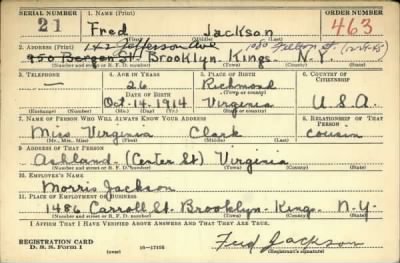 SERIAL NUMBER 1. NAME (Print) ORDER NUMBER
21 Fred Jackson 463
(First) (Middle) (Last)
142 Jefferson Ave 1080 Fulton St. (12-24-45)
2. ADDRESS (Print)
950 Bergen St. Brooklyn. Kings. N.Y.
(Number and street or R. F. D. number) (Town) (County) (State)
3. TELEPHONE 4. AGE IN YEARS 5. PLACE OF BIRTH 6. COUNTRY OF CITIZENSHIP
— 26 Richmond
DATE OF BIRTH (Town or county)
Oct. 14. 1914 Virginia U.S.A.
(Exchange) (Number) (Mo.) (Day) (Yr.) (State or country)
7. NAME OF PERSON WHO WILL ALWAYS KNOW YOUR ADDRESS 8. RELATIONSHIP OF THAT PERSON
Miss Virginia Clark cousin
(Mr., Mrs., Miss) (First) (Middle) (Last)
9. ADDRESS OF THAT PERSON
Ashland. (Center St) Virginia
(Number and street or R. F. D. number) (Town) (County) (State)
10. EMPLOYER'S NAME
Morris Jackson
11. PLACE OF EMPLOYMENT OR BUSINESS
1486 Carroll St. Brooklyn. King. N.Y.
(Number and street or R. F. D. number) (Town) (County) (State)
I AFFIRM THAT I HAVE VERIFIED ABOVE ANSWERS AND THAT THEY ARE TRUE.
REGISTRATION CARD
D. S. S. Form 1 (over) 16—17105 Fred Jackson
(Registrant's signature)